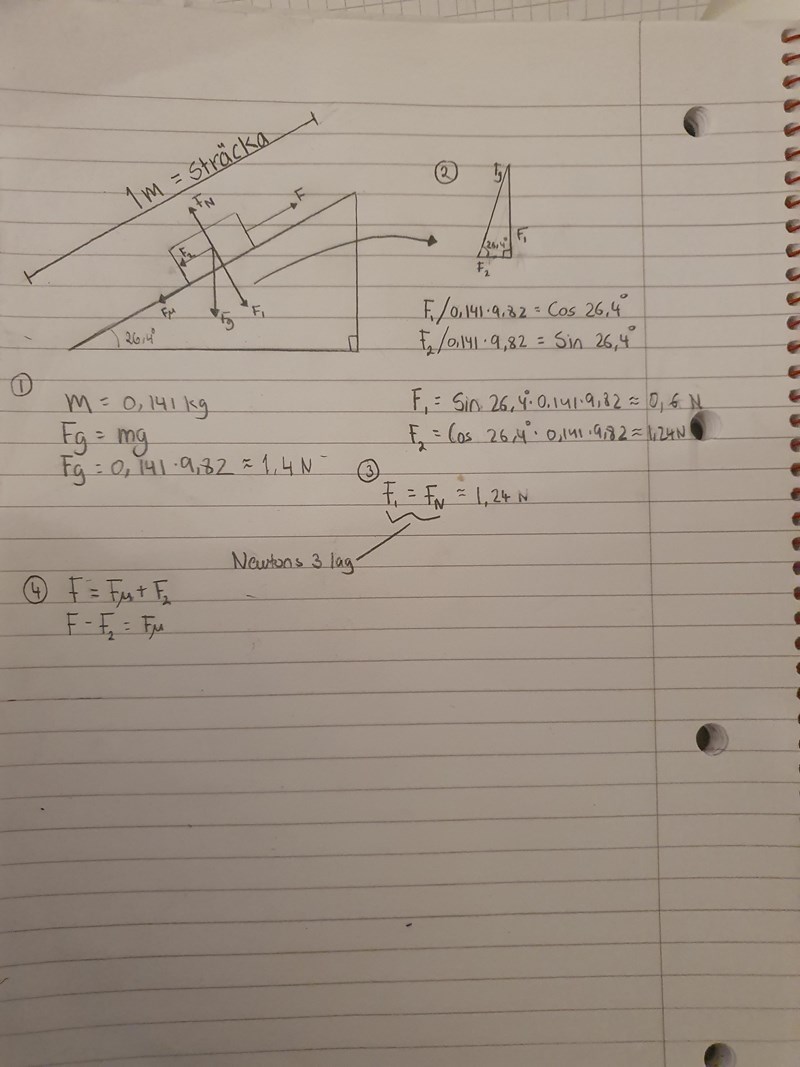 1m = Sträcka
FN
F
F2
Fμ
Fg
F1
26,4°
②
Fg
26,4°
F1
F2
F1/0,141·9,82 = Cos 26,4°
F2/0,141·9,82 = Sin 26,4°
①
m = 0,141 kg
Fg = mg
Fg = 0,141·9,82 ≈ 1,4 N
F1 = Sin 26,4°·0,141·9,82 ≈ 0,6 N
F2 = Cos 26,4°·0,141·9,82 ≈ 1,24 N
③
F1 = FN ≈ 1,24 N
Newtons 3 lag
④ F = Fμ + F2
F - F2 = Fμ